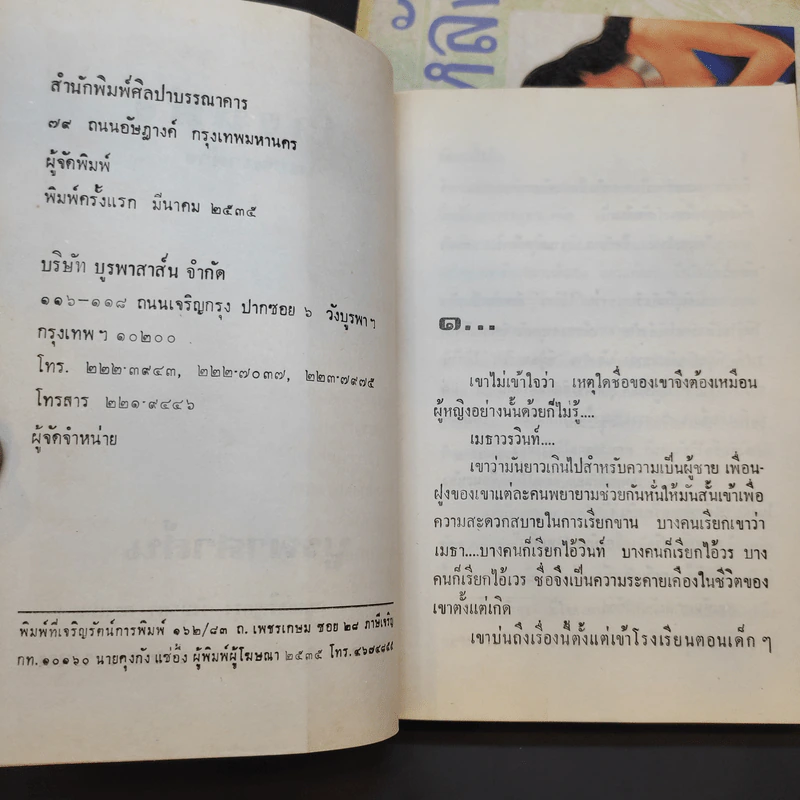 สำนักพิมพ์ศิลปาบรรณาคาร
๗๙ ถนนอัษฎางค์ กรุงเทพมหานคร
ผู้จัดพิมพ์
พิมพ์ครั้งแรก มีนาคม ๒๕๓๕
บริษัท บูรพาสาส์น จำกัด
๑๑๖-๑๑๘ ถนนเจริญกรุง ปากซอย ๖ วังบูรพาฯ
กรุงเทพฯ ๑๐๒๐๐
โทร. ๒๒๒-๓๙๔๓, ๒๒๒-๗๐๓๗, ๒๒๓-๗๙๗๕
โทรสาร ๒๒๑-๙๔๔๖
ผู้จัดจำหน่าย
พิมพ์ที่เจริญรัตน์การพิมพ์ ๑๖๒/๘๓ ถ. เพชรเกษม ซอย ๒๘ ภาษีเจริญ
กท. ๑๐๑๖๐ นายคุงกัง แซ่อึ้ง ผู้พิมพ์ผู้โฆษณา ๒๕๓๕ โทร.
๑...
เขาไม่เข้าใจว่า เหตุใดชื่อของเขาจึงต้องเหมือน
ผู้หญิงอย่างนั้นด้วยก็ไม่รู้....
เมธาวรวินท์....
เขาว่ามันยาวเกินไปสำหรับความเป็นผู้ชาย เพื่อน-
ฝูงของเขาแต่ละคนพยายามช่วยกันหั่นให้มันสั้นเข้าเพื่อ
ความสะดวกสบายในการเรียกขาน บางคนเรียกเขาว่า
เมธา....บางคนก็เรียกไอ้วินท์ บางคนก็เรียกไอ้วร บาง
คนก็เรียกไอ้เวร ชื่อจึงเป็นความระคายเคืองในชีวิตของ
เขาตั้งแต่เกิด
เขาบ่นถึงเรื่องนี้ตั้งแต่เข้าโรงเรียนตอนเด็ก ๆ